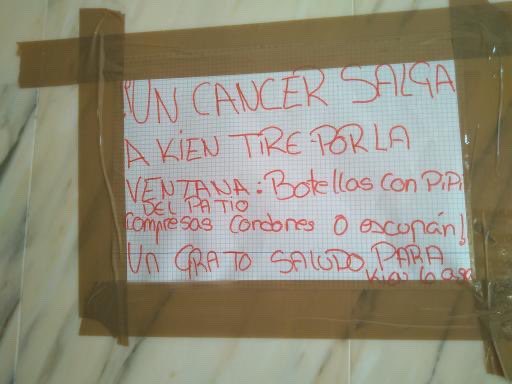 ¡UN CANCER SALGA
A KIEN TIRE POR LA
VENTANA: Botellas con PiPi
DEL PATIO
compresas condones O escupán!
UN GRATO SALUDO PARA
kien lo aga